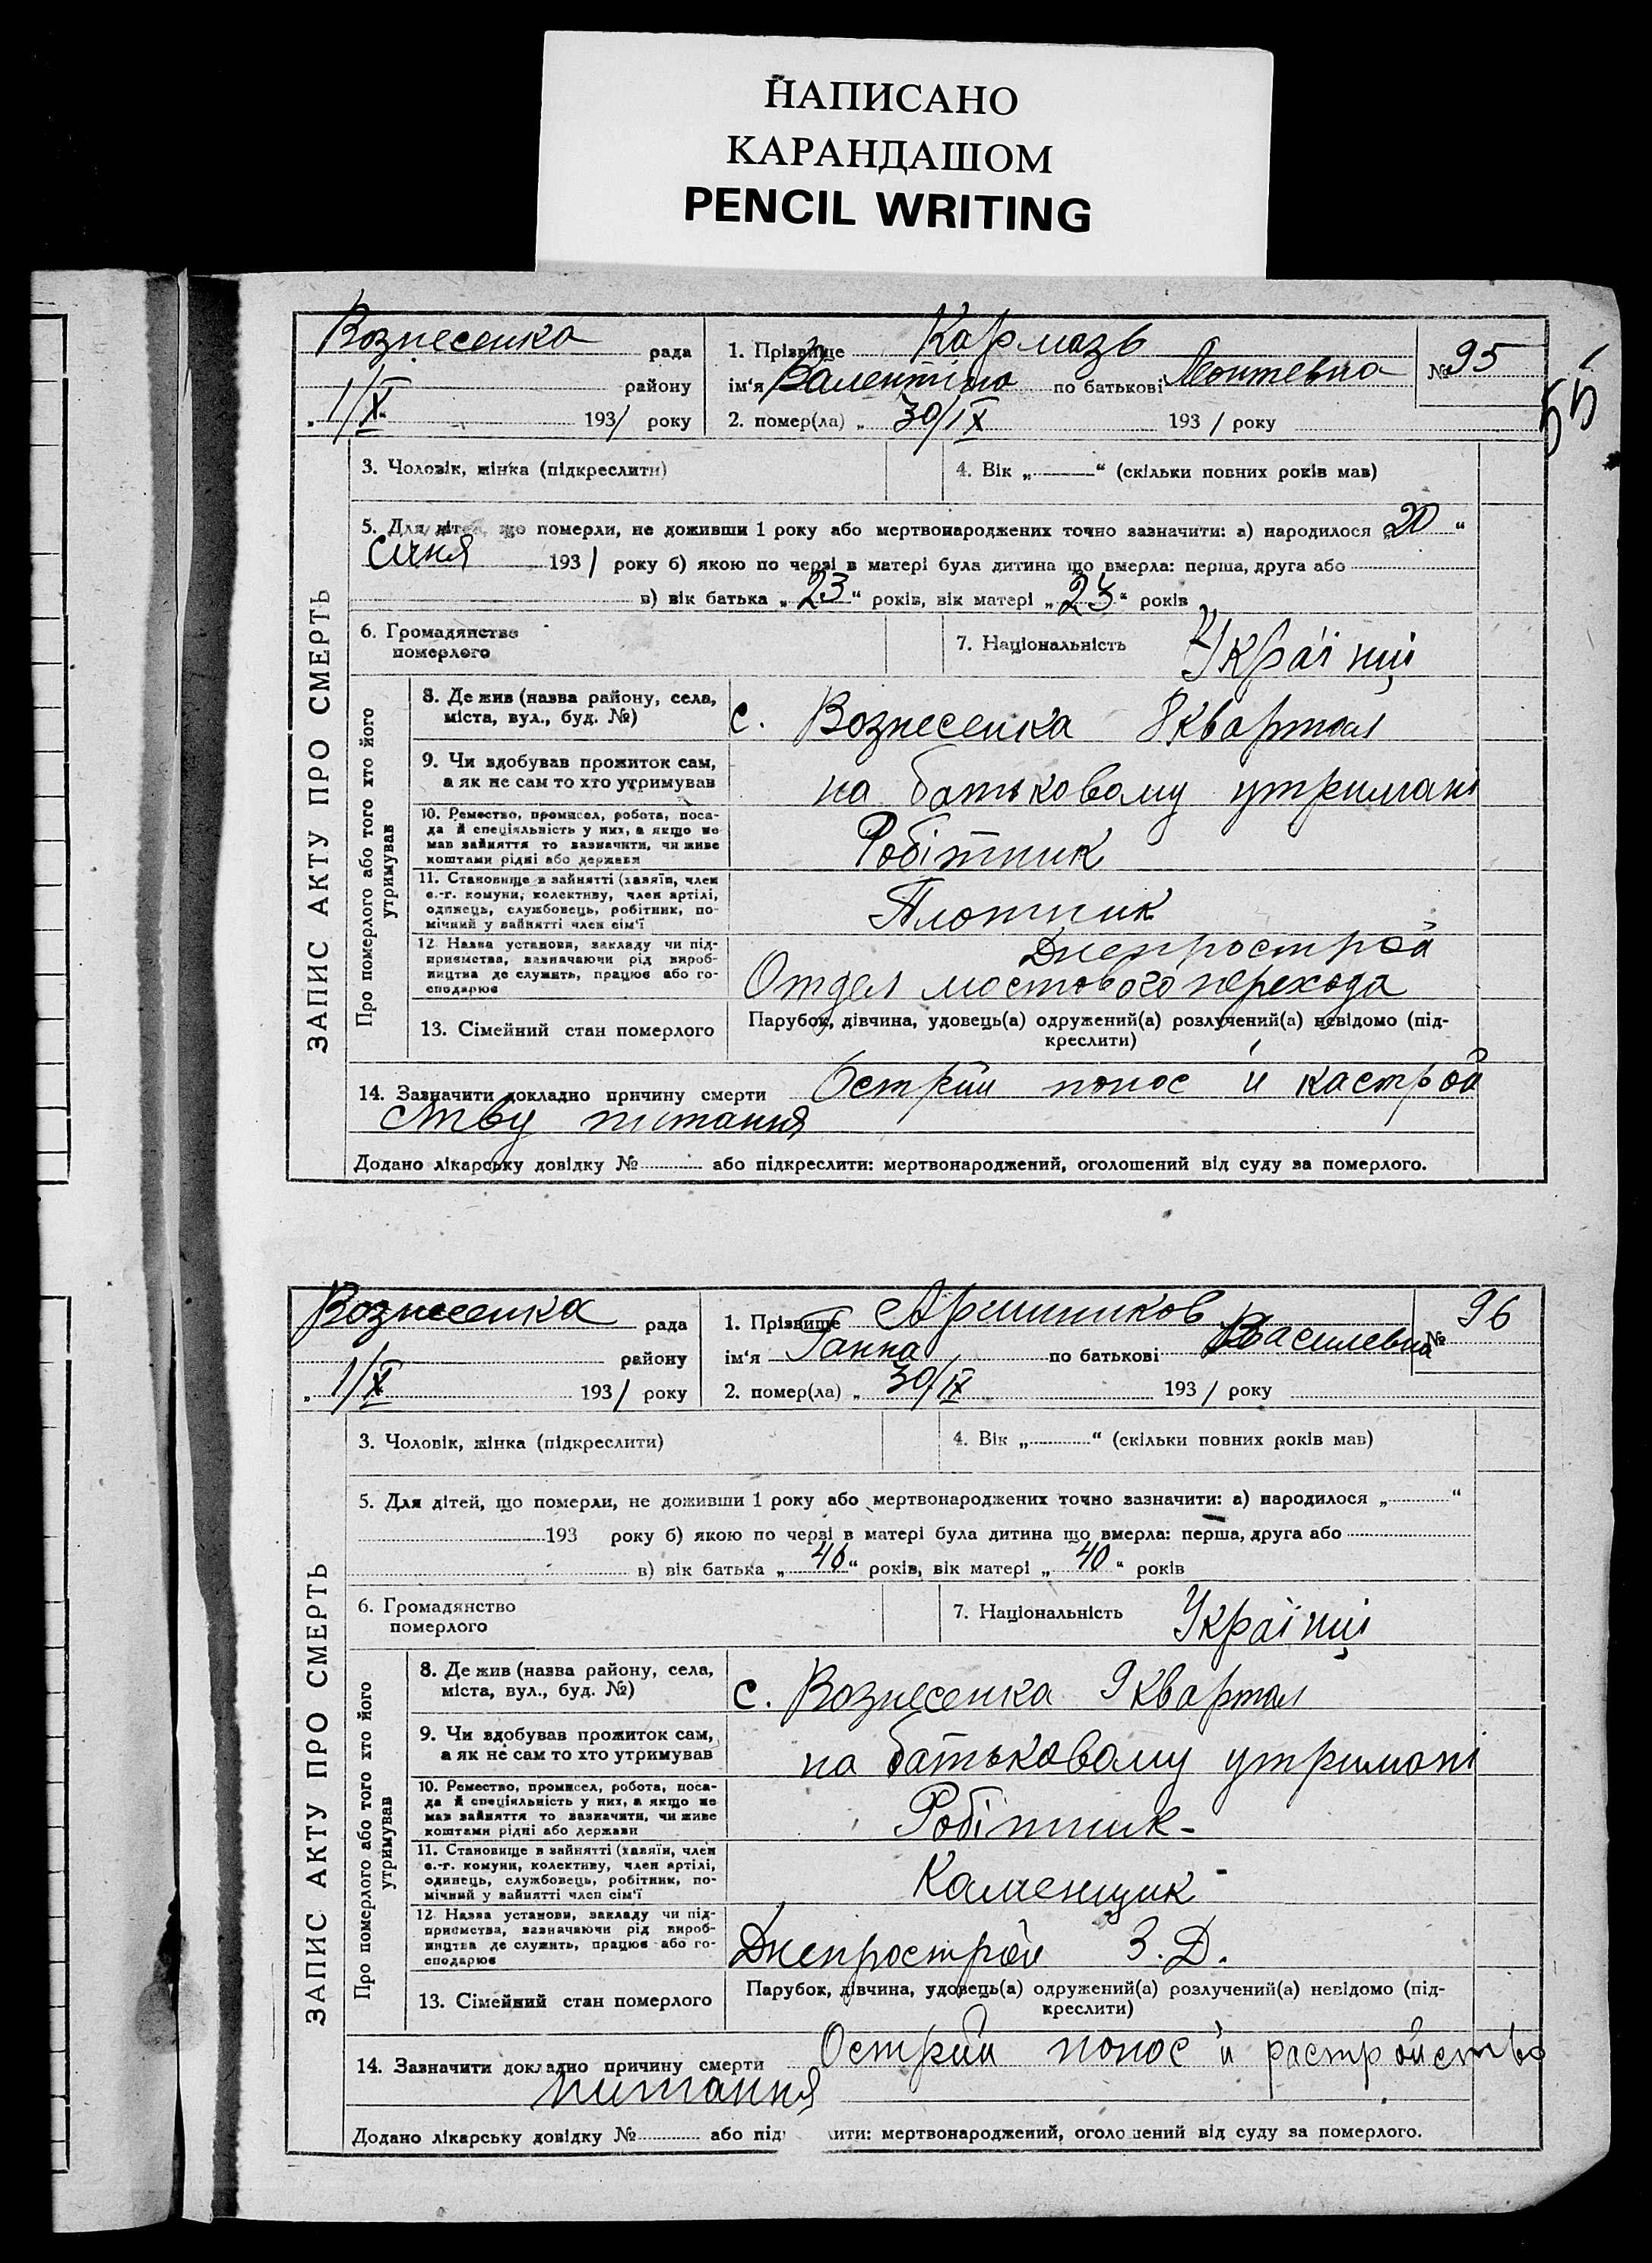 НАПИСАНО
КАРАНДАШОМ
PENCIL WRITING
55
ЗАПИС АКТУ ПРО СМЕРТЬ
Вознесенка рада
району
„ 1/X 1931 року
1. Прізвище Кармазь
ім'я Валентіна по батькові Леонтевна
№ 95
2. помер(ла) „ 30/IX 1931 року
3. Чоловік, жінка (підкреслити)
4. Вік „ “ (скільки повних років мав)
5. Для дітей, що померли, не доживши 1 року або мертвонароджених точно зазначити: а) народилося „ 20 “
січня 1931 року б) якою по черзі в матері була дитина що вмерла: перша, друга або
в) вік батька „ 23 “ років, вік матері „ 23 “ років
6. Громадянство
померлого
7. Національність Українці
Про померлого або того хто його
утримував
8. Де жив (назва району, села,
міста, вул., буд. №)
с. Вознесенка 8 квартал
9. Чи здобував прожиток сам,
а як не сам то хто утримував
на батьковому утримані
10. Ремество, промисел, робота, поса-
да й спеціяльність у них, а якщо не
мав зайняття то зазначити, чи живе
коштами рідні або держави
Робітник
11. Становище в зайнятті (хазяїн, член
с.-г. комуни, колективу, член артілі,
одинець, службовець, робітник, по-
мічний у зайнятті член сім'ї
Плотник
12 Назва установи, закладу чи під-
приємства, зазначаючи рід вироб-
ництва де служить, працює або го-
сподарює
Днепрострой
Отдел мостового перехода
13. Сімейний стан померлого
Парубок, дівчина, удовець(а) одружений(а) розлучений(а) невідомо (під-
креслити)
14. Зазначити докладно причину смерти Острий понос и кастрой
ству питання
Додано лікарську довідку № або підкреслити: мертвонароджений, оголошений від суду за померлого.
ЗАПИС АКТУ ПРО СМЕРТЬ
Вознесенка рада
району
„ 1/X 1931 року
1. Прізвище Аришников
ім'я Ганна по батькові Василевна
№ 96
2. помер(ла) „ 30/IX 1931 року
3. Чоловік, жінка (підкреслити)
4. Вік „ “ (скільки повних років мав)
5. Для дітей, що померли, не доживши 1 року або мертвонароджених точно зазначити: а) народилося „ “
193 року б) якою по черзі в матері була дитина що вмерла: перша, друга або
в) вік батька „ 40 “ років, вік матері „ 40 “ років
6. Громадянство
померлого
7. Національність Українці
Про померлого або того хто його
утримував
8. Де жив (назва району, села,
міста, вул., буд. №)
с. Вознесенка 9 квартал
9. Чи здобував прожиток сам,
а як не сам то хто утримував
на батьковому утримані
10. Ремество, промисел, робота, поса-
да й спеціяльність у них, а якщо не
мав зайняття то зазначити, чи живе
коштами рідні або держави
Робітник -
11. Становище в зайнятті (хазяїн, член
с.-г. комуни, колективу, член артілі,
одинець, службовець, робітник, по-
мічний у зайнятті член сім'ї
Каменщик
12 Назва установи, закладу чи під-
приємства, зазначаючи рід вироб-
ництва де служить, працює або го-
сподарює
Днепрострой З. Д.
13. Сімейний стан померлого
Парубок, дівчина, удовець(а) одружений(а) розлучений(а) невідомо (під-
креслити)
14. Зазначити докладно причину смерти Острий понос и растройство
питання
Додано лікарську довідку № або під ити: мертвонароджений, оголо ений від суду за померлого.